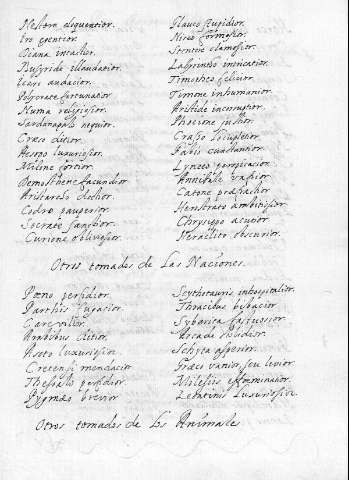 Nestore eloquentior.
Iro egentior.
Diana intactior.
Busyride illaudatior.
Icaro audacior.
Polycrate fortunatior
Numa religiosior.
Sardanapalo nequior.
Crœso ditior.
Aesopo luxuriosior.
Milone fortior.
Demosthene facundior
Aristarcho doctior.
Codro pauperior.
Socrate sanctior.
Curione obliviosior.
Glauco stupidior.
Nireo formosior.
Stentore clamosior.
Labyrintho intricatior.
Timotheo felicior.
Timone inhumanior.
Aristide incorruptior.
Phocione justior.
Crasso locupletior.
Fabio cunctantior.
Lynceo perspicacior.
Annibale vafrior.
Catone
Herostrato ambitiosior.
Chrysippo acutior.
Heraclito obscurior.
Otros tomados de Las Naciones.
Pœno perfidior.
Parthis fugacior.
Care vilior.
Arabibus ditior.
Asoto luxuriosior.
Cretensi mendacior
Thessalo perfidior.
Pygmæo brevior
Scythotauris inhospitalior.
Thracibus bibacior
Sybarita fastuosior.
Arcade stolidior.
Schyta asperior.
Græco vanior, seu levior.
Milesiis effœminatior.
Leontinis Luxuriosior.
Otros tomados de los Animales.